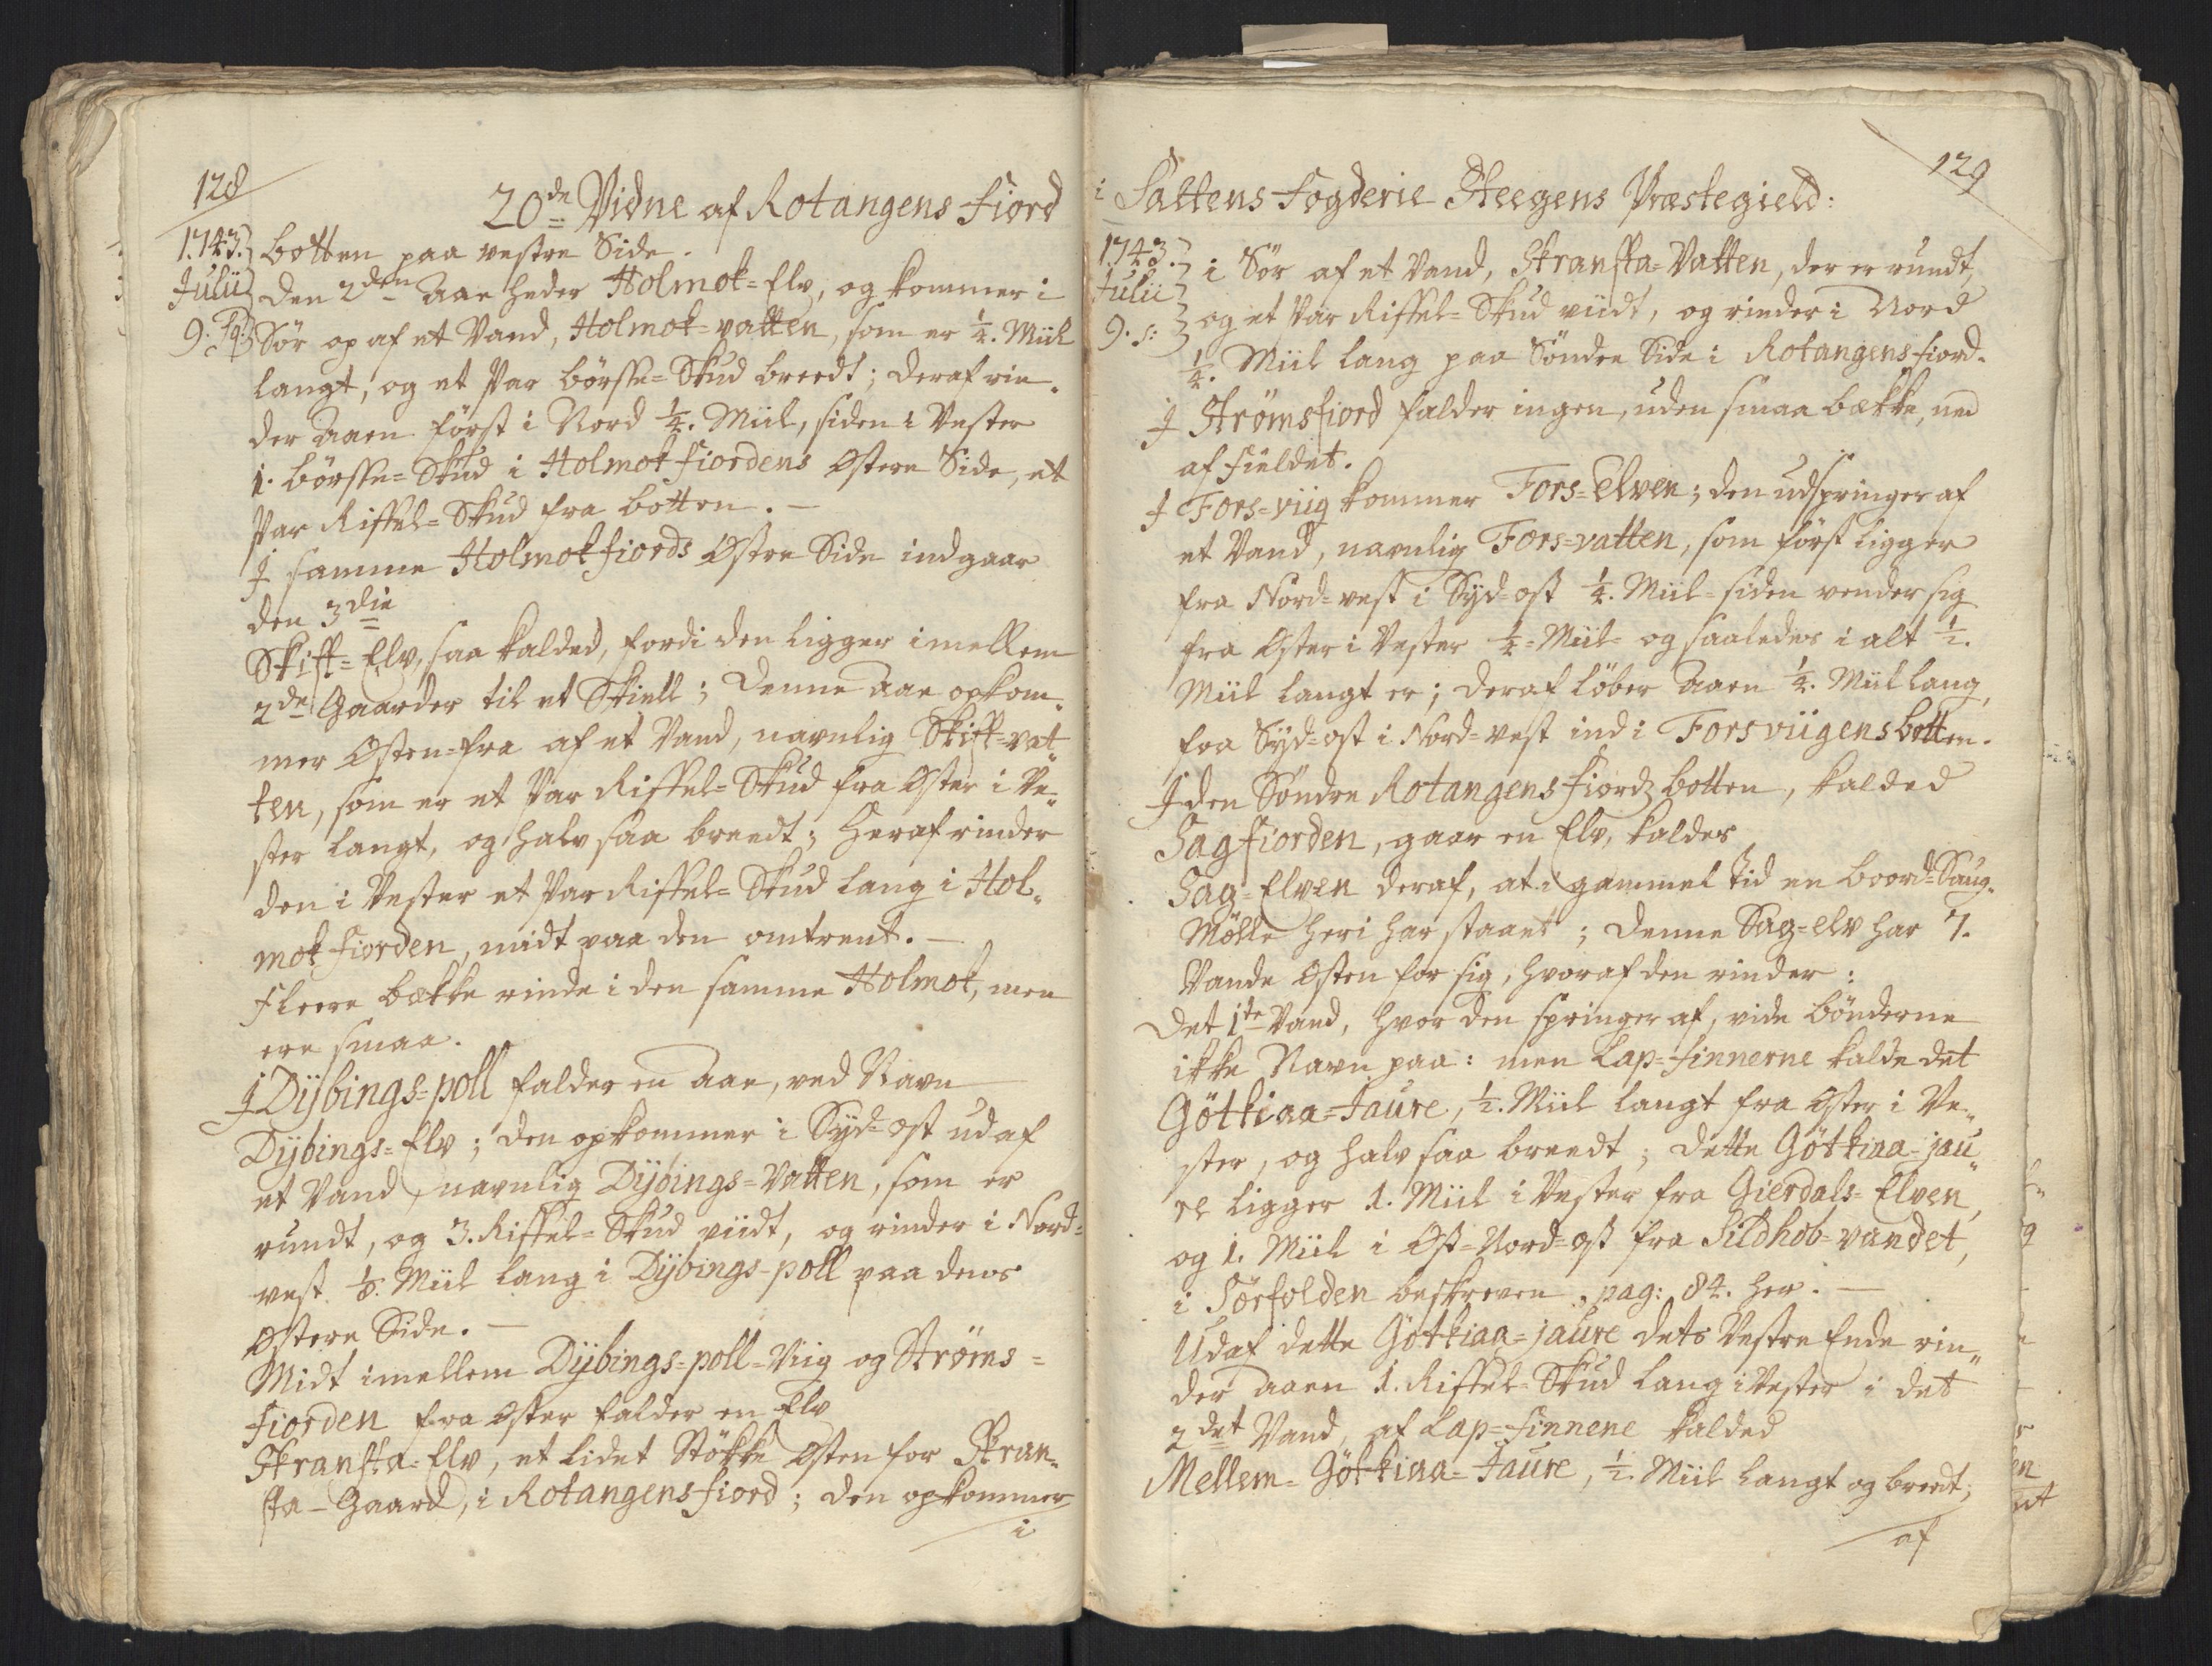 128
20de Vidne af Rotangens Fiord
1743. botten paa vestre Side.
Julii Den 2den Aae heder Holmok=Elv, og kommer i
9. Sq: Sør op af et Vand, Holmok=vatten, som er 1/4. Miil
langt, og et Par börsse=Skud breedt; deraf rin-
der Aaen först i Nord 1/4. Miil, siden i Vester
1. börsse=Skud i Holmokfiordens Østere Side, et
Par Riffel=Skud fra botten. —
J samme Holmokfiords Østre Side indgaar
den 3die
Skift=Elv, saa kalded, fordi den ligger imellem
2de Gaarder til et Skiell; Denne Aae opkom-
mer Østen=fra af et Vand, navnlig Skift=vat-
ten, som er et Par Riffel=Skud fra Øster i Ve-
ster langt, og halv saa breedt; heraf rinder
den i Vester et Par Riffel=Skud lang i Hol-
mokfiorden, midt paa den omtrent. —
Fleere bække rinde i den samme Holmok, men
ere smaa.
J Dÿbings=poll falder en Aae, ved Navn
Dÿbings=Elv; den opkommer i Syd=ost ud af
et Vand, navnlig Dÿbings=Vatten, som er
rundt, og 3. Riffel=Skud viidt, og rinder i Nord=
vest 1/8. Miil lang i Dÿbings=poll paa dens
Østere Side. —
Midt imellem Dÿbings=poll=Viig og Strøms=
fiorden fra Øster falder en Elv
Stransta=Elv, et lidet Stökke Østen for Stran-
sta=Gaard, i Rotangensfiord; den opkommer
i
129
i Saltens Fogderie Steegens Præstegield:
1743. i Sør af et Vand, Stransta=Vatten, der er rundt,
Julii og et Par Riffel=Skud viidt, og rinder i Nord
9. s: 1/4. Miil lang paa Söndre Side i Rotangensfiord.
J Strømsfiord falder ingen, uden smaa bække, ned
af Fieldet.
J Fors=viig kommer Fors=Elven; den udspringer af
et Vand, navnlig Fors=vatten, som först ligger
fra Nord=vest i Syd=ost 1/4. Miil= siden vender sig
fra Øster i Vester 1/4=Miil= og saaledes i alt 1/2.
Miil langt er; deraf löber Aaen 1/4. Miil lang,
fra Syd=ost i Nord=vest ind i Forsviigens botten.
J den Söndre Rotangens fiords botten, kalded
Sagfiorden, gaar en Elv, kaldes
Sag=Elven deraf, at i gammel tid en boord=Saug-
Mölle heri har staaet; Denne Sag=elv har 7.
Vande Østen for sig, hvoraf den rinder:
Det 1te Vand, hvor den springer af, vide bönderne
ikke Navn paa: men Lap=finnerne kalde det
Götkiaa=Jaure, 1/2. Miil langt fra Øster i Ve-
ster, og halv saa breedt; dette Götkiaa=jau-
re ligger 1. Miil i Vester fra Gierdals=Elven,
og 1. Miil i Ost=Nord=ost fra Sildhob=vandet,
i Sörfolden beskreven pag: 84. her. —
Udaf dette Götkiaa=jaure dets Vestre Ende rin-
der Aaen 1. Riffel=Skud lang i Vester i det
2det Vand, af Lap=finnene kalded
Mellem=Götkiaa=Jaure, 1/2. Miil langt og bredt;
af